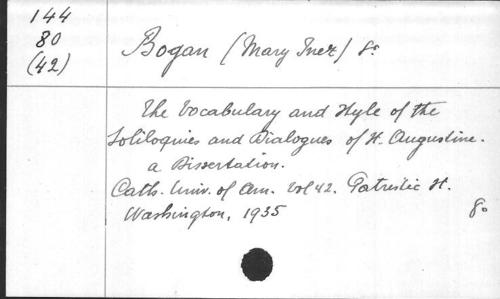 144
80
(42)
Bogan (Mary Inez) Sr
The Vocabulary and Style of the
Soliloquies and Dialogues of St. Augustine.
a Dissertation.
Cath. Univ. of Am. Vol 42. Patristic St.
Washington, 1935
8o